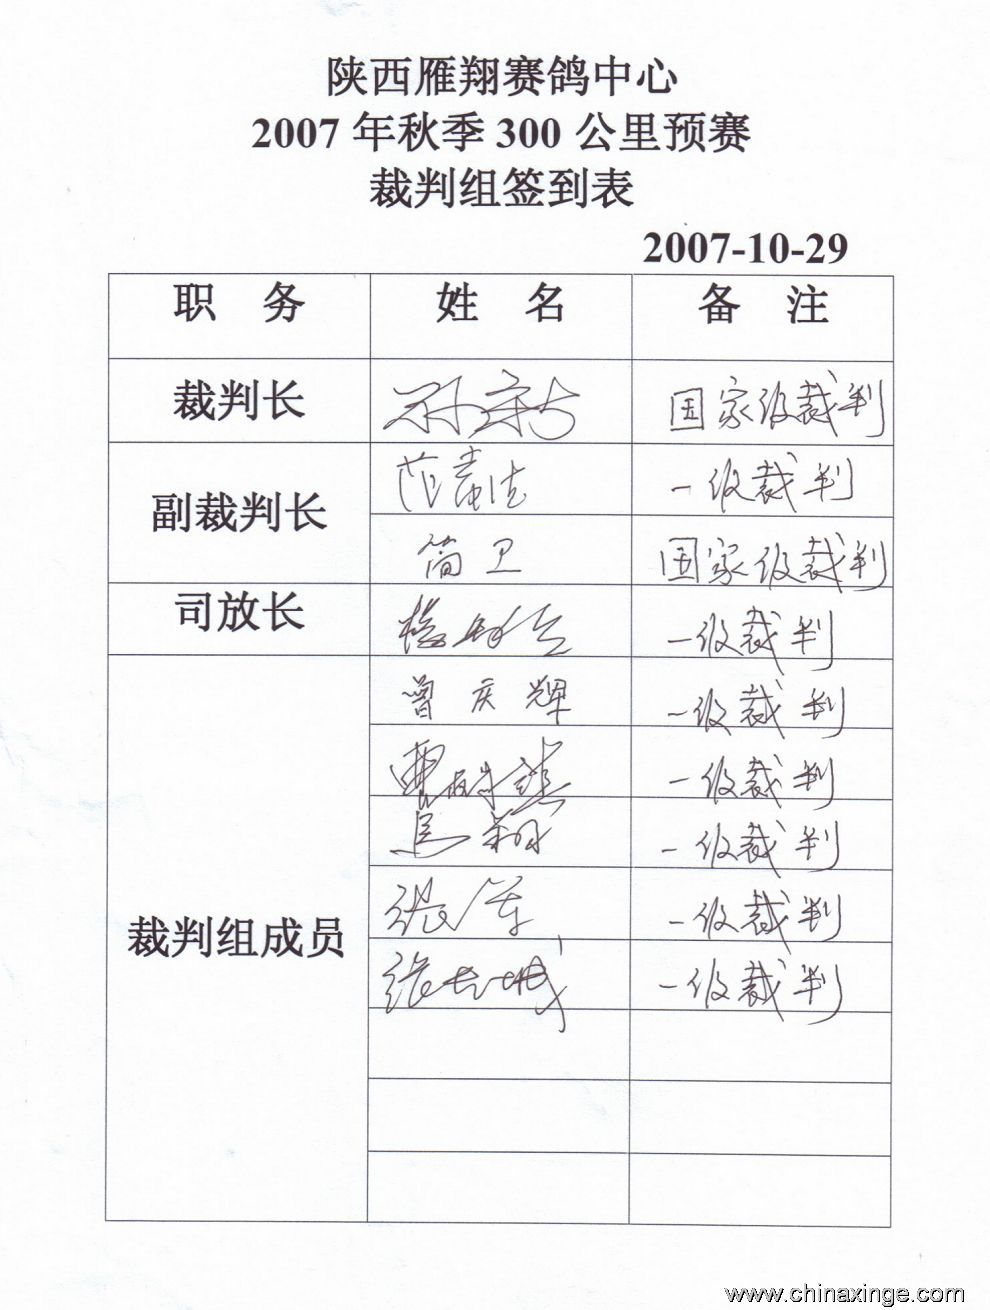 陕西雁翔赛鸽中心
2007年秋季300公里预赛
裁判组签到表
2007-10-29
职 务 姓 名 备 注
裁判长 国家级裁判
副裁判长 一级裁判
简卫 国家级裁判
司放长 一级裁判
裁判组成员 曾庆辉 一级裁判
一级裁判
马翔 一级裁判
张军 一级裁判
张长城 一级裁判
www.chinaxinge.com